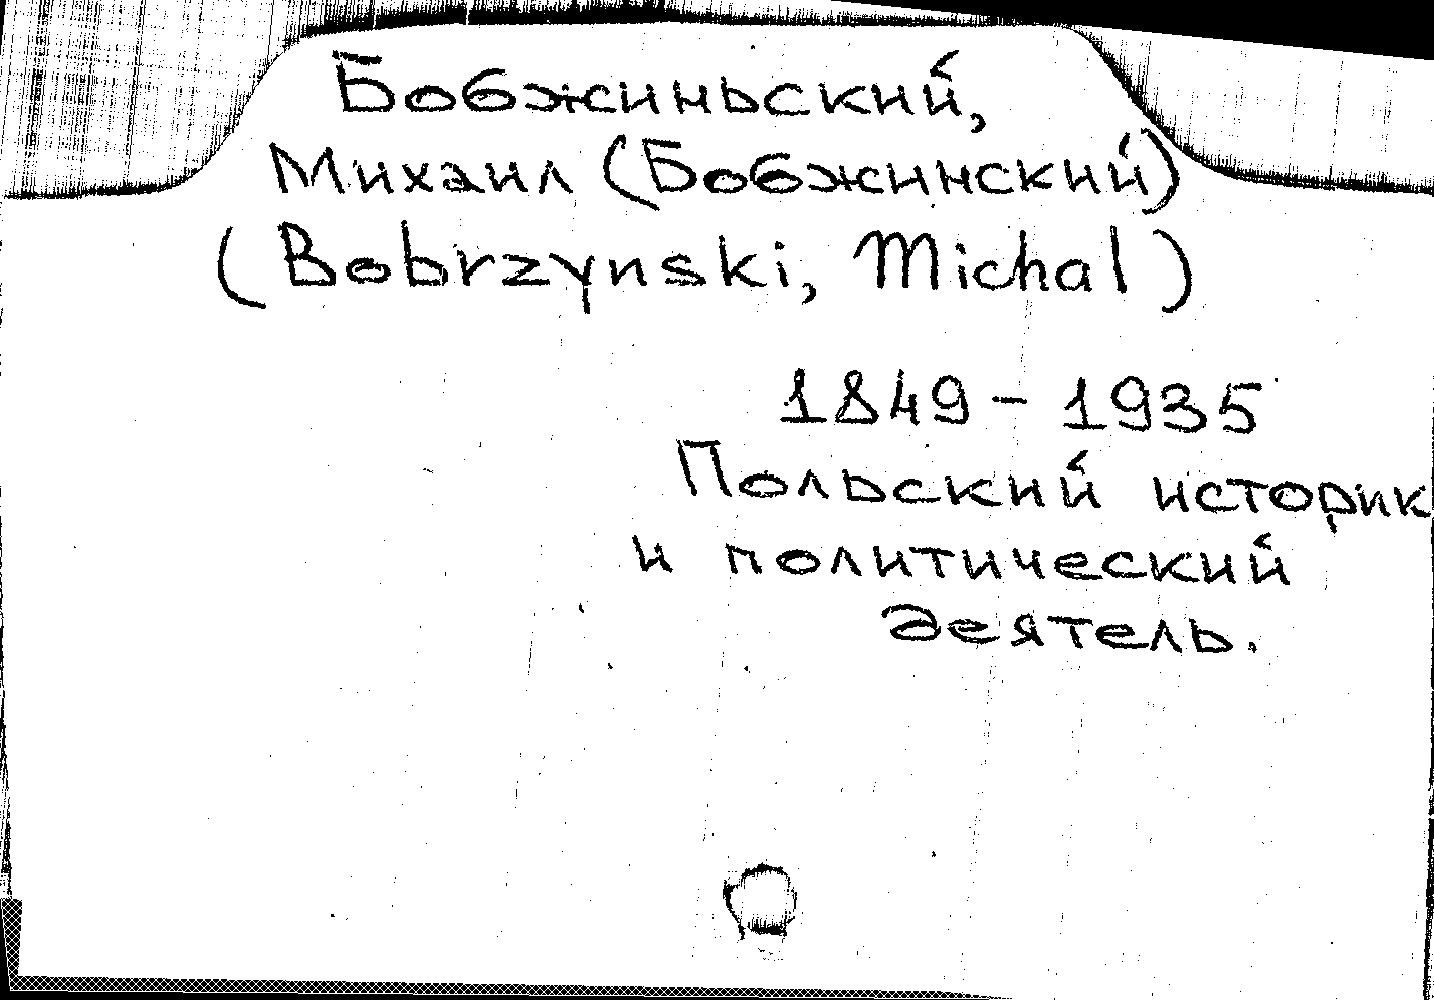 Бобжиньский,
Михаил (Бобжинский)
(Bobrzynski, Michal)
1849-1935
Польский историк
и политический
деятель.